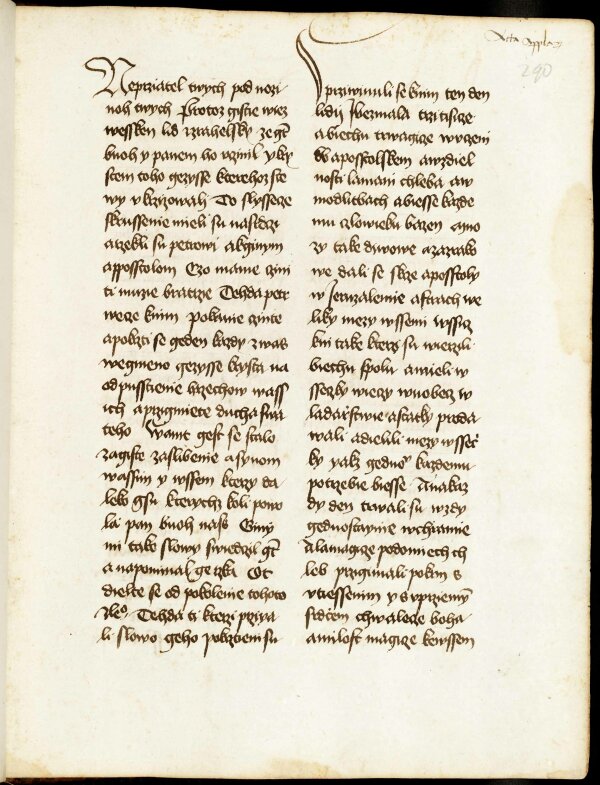 Acta Appl'oꝝ
290
Neprziatel twych pod nozi
noh twych Protoz gistie wiez
wessken lid izrahelsky ze gt
buoh y panem ho vczinil y kry
stem toho gezysse kterehoz ste
wy vkrizowali To slyssece
skrussenie mieli su na srdczi
a rzekli su petrowi a k ginym
apposstolom Czo mame czini
ti muzie bratrzie Tehda petr
wece knim pokanie czinte
a pokrzti se geden kazdy z was
we gmeno gezysse krysta na
odpusstienie hrzechow wass
ich a przigmete ducha swa
teho Wam gest se stalo
zagiste zaslibenie a synom
wassim y wssem kterzy da
leko gsu kterychz koli powo
la pan buoh nass Giny
mi take slowy swiedczil gt
a napominal ge rzka Ot
dielte se od pokolenie tohoto
zleo Tehda ti kterzi prziya
li slowo geho pokrzieni su
y przywinuli se knim ten den
lidij bezmala trzi tisicze
a biechu trwagicze w vczeni
do apposstolskem a w zdiel
nosti lamani chleba a w
modlitbach a biesse kazde
mu czlowieku bazen mno
zy take diwowe a zazrako
we dali se skrze aposstoly
w Jeruzalemie a strach we
liky mezy wssemi Wssiz
kni take kterzi su wierzili
biechu spolu a mieli w
sseczky wiecy w uobecz w
ladarzstwie a statky proda
wali a dielili mezy wssec
ky yakz gednoo kazdemu
potrzebie biesse A nakaz
dy den trwali su wzdy
gednostaynie w chramie
A lamagicze po domiech ch
leb przigimali pokrm s
vtiessenim y s vprziemym
srdcem chwalece boha
a milost magicze ke wssem